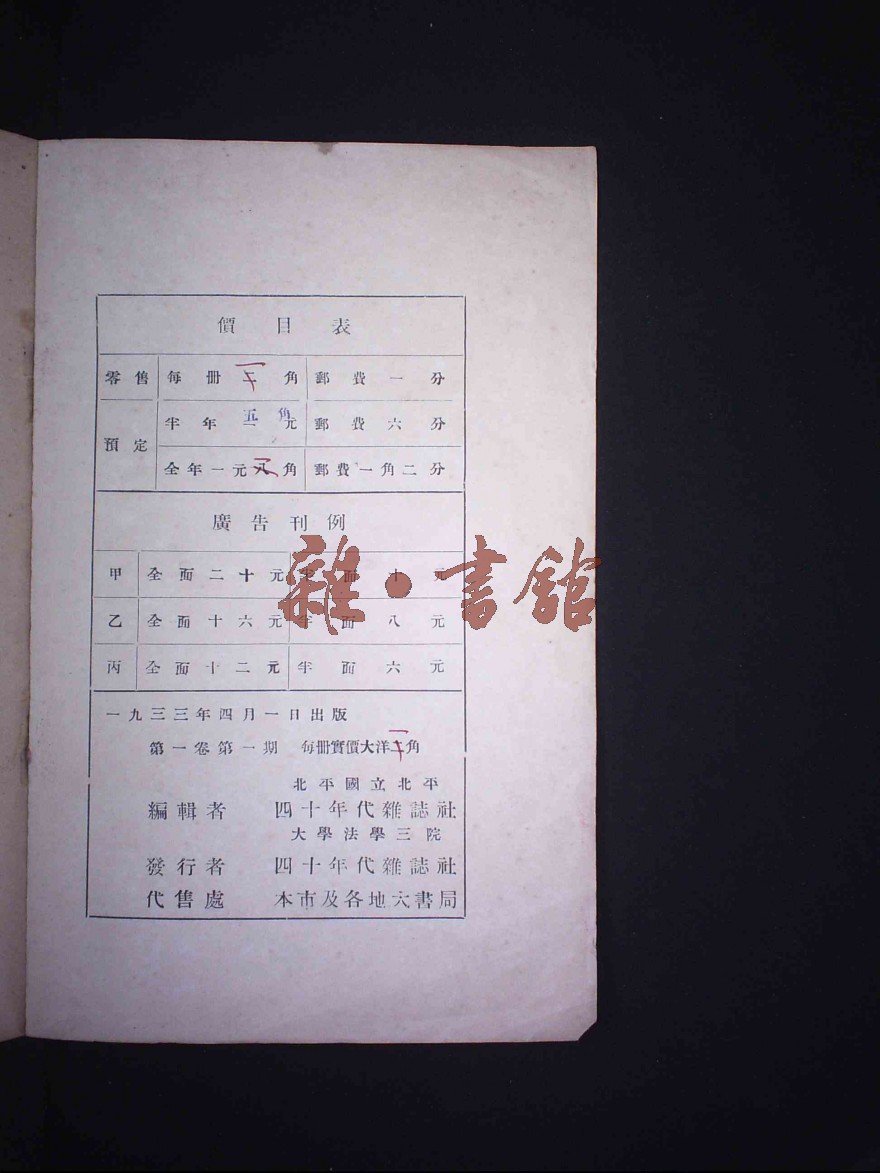 價目表
零售 每冊一角 郵費一分
預定 半年五角元 郵費六分
全年一元八角 郵費一角二分
廣告刊例
甲 全面二十元 半面十元
乙 全面十六元 半面八元
丙 全面十二元 半面六元
一九三三年四月一日出版
第一卷第一期 每冊實價大洋一角
北平國立北平
編輯者 四十年代雜誌社
大學法學三院
發行者 四十年代雜誌社
代售處 本市及各地大書局
雜·書館